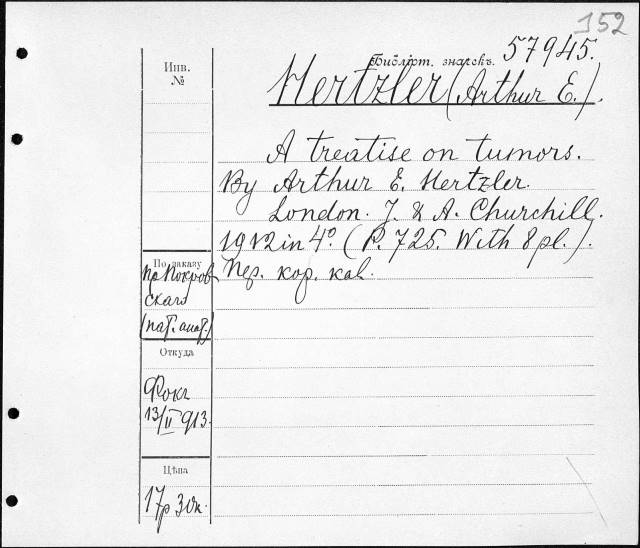 152
Библіот. значекъ. 57945.
Hertzler (Arthur E.).
A treatise on tumors.
By Arthur E. Hertzler.
London. J. & A. Churchill.
1912 in 4º. (P. 725. With 8 pl.).
Пер. кор. кал.
Инв.
№
По заказу
пр Покров
скаго
(пат. анат.)
Откуда
Фокъ
13/II 913.
Цѣна
17р 30к.